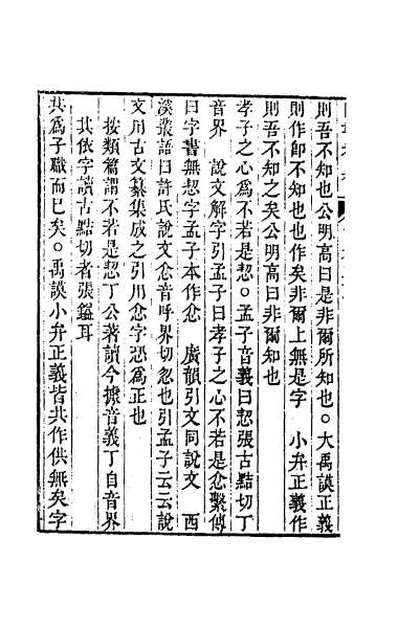 則吾不知也公明高曰是非爾所知也。大禹謨正義
則作卽不知也也作矣非爾上無是字　小弁正義作
則吾不知之矣公明高曰非爾知也
孝子之心爲不若是恝。孟子音義曰恝張古黠切丁
音界　說文解字引孟子曰孝子之心不若是忿繫傳
曰字書無恝字孟子本作忿　廣韻引文同說文　西
溪叢語曰許氏說文忿音呼界切忽也引孟子云云說
文用古文纂集成之引用忿字恐爲正也
按類篇謂不若是恝丁公著讀今據音義丁自音界
其依字讀古黠切者張鎰耳
共爲子職而巳矣。禹謨小弁正義皆共作供無矣字